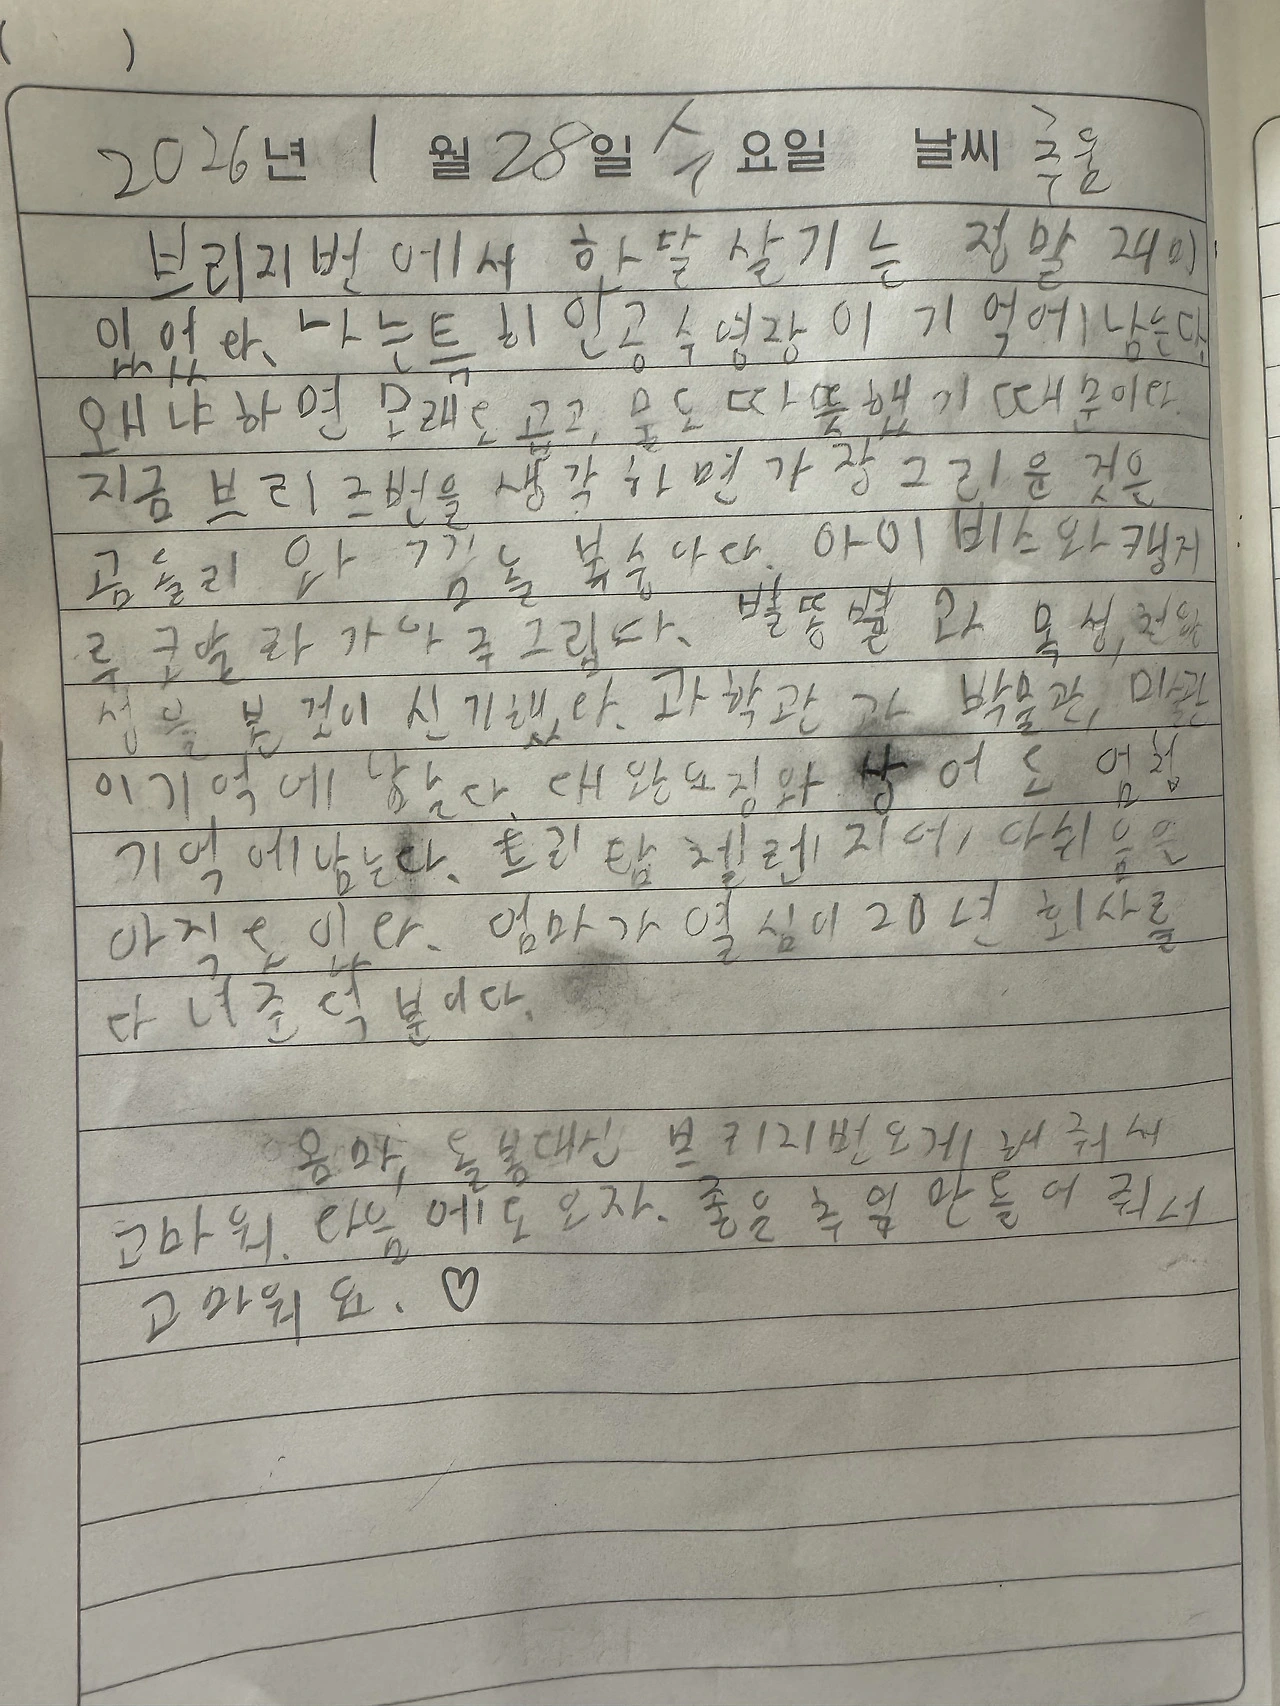 ( )
2026년 1월 28일 수요일 날씨 추움
브리지번에서 하달 살기는 정말 재미
있었다. 나는 특히 인공수영장이 기억에 남는다.
왜냐하면 모래도 곱고, 물도 따뜻했기 때문이다.
지금 브리즈번을 생각하면 가장 그리운 것은
곰돌리와 복숭아다. 아이비스와 캥거
루 코알라가 아주 그립다. 별똥별과 목성,
섬을 본 것이 신기했다. 과학관과 박물관, 미관
이 기억에 남는다. 상어도 엄청
기억에 남는다. 프리담 첼렌지에 아쉬움은
아직도 있다. 엄마가 열심이 20년 회사를
다녀준 덕분이다.
브리지번 오게 해줘서
고마워. 다음에도 오자. 좋은 추업 만들어 줘서
고마워요. ♡